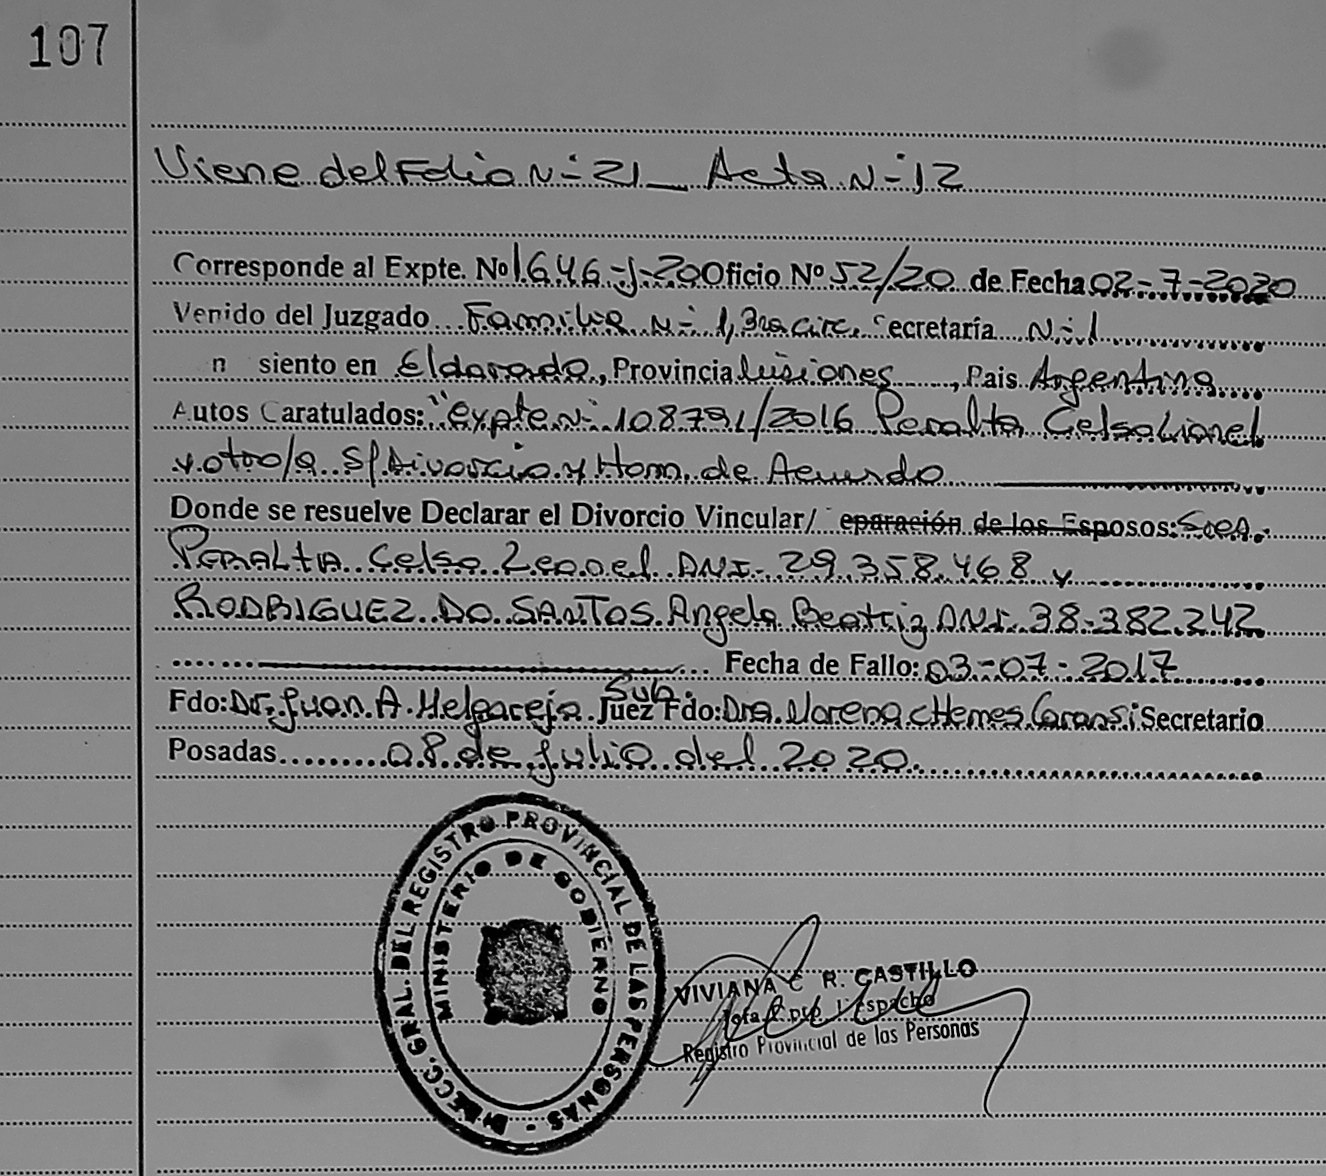 107
Viene del Folio N° 21 _ Acta N° 12
Corresponde al Expte. Nº 1.646-J-20 Oficio Nº 52/20 de Fecha 02-7-2020
Venido del Juzgado Familia N° 1, 3ra circ. Secretaría N° 1
n siento en Eldorado, Provincia Misiones, Pais Argentina
Autos Caratulados: "Expte N° 108791/2016 Peralta Celso Lionel
y otro/a S/Divorcio y Hom. de Acuerdo
Donde se resuelve Declarar el Divorcio Vincular/ eparación de los Esposos: Sres.
PERALTA Celso Leonel DNI- 29.358.468 y
RODRIGUEZ DO SANTOS Angela Beatriz DNI. 38.382.242
Fecha de Fallo: 03-07-2017
Fdo: Dr. Juan A. Melgarejo Sub. Juez Fdo: Dra. Morena Secretario
Posadas 08 de Julio del 2020.
DIRECC. GRAL. DEL REGISTRO PROVINCIAL DE LAS PERSONAS -
MINISTERIO DE GOBIERNO
VIVIANA C R. CASTILLO
Jefa Dpto. Despacho
Registro Provincial de las Personas